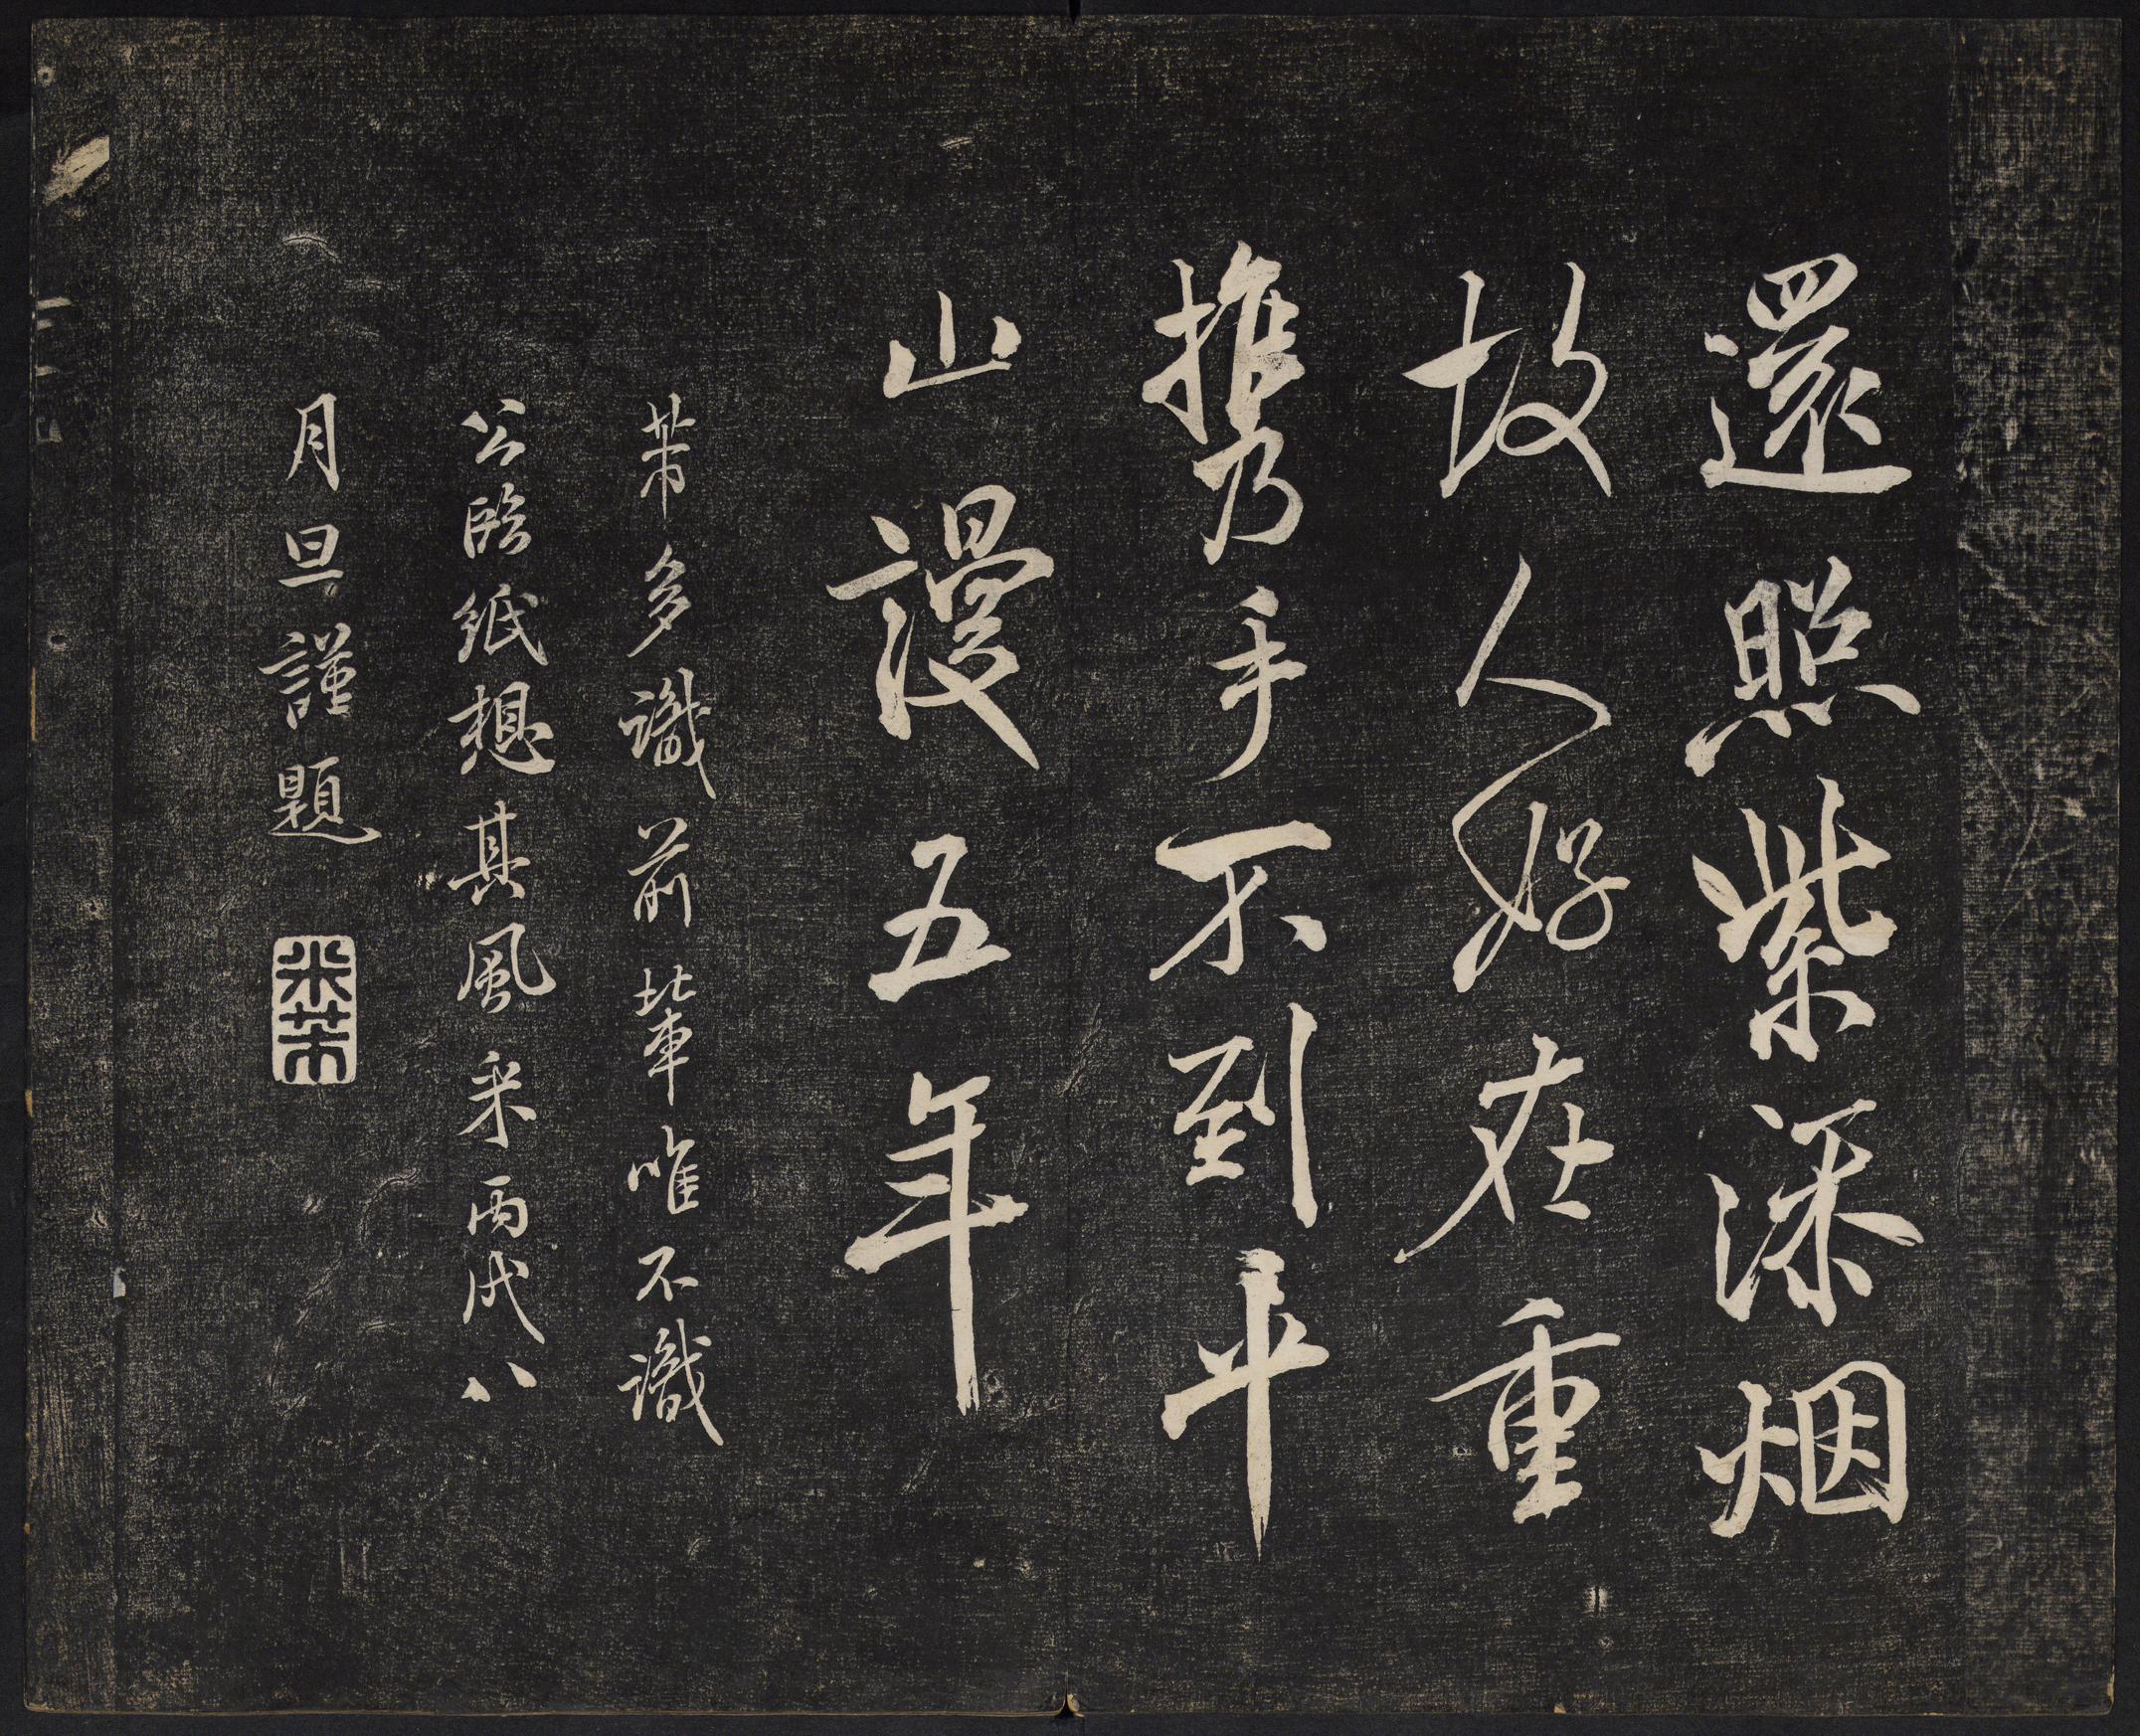 還照紫深烟
故人好在重
携手不到平
山謾五年
芾多識前輩唯不識
公臨紙想其風采丙戌八
月旦謹題
米芾